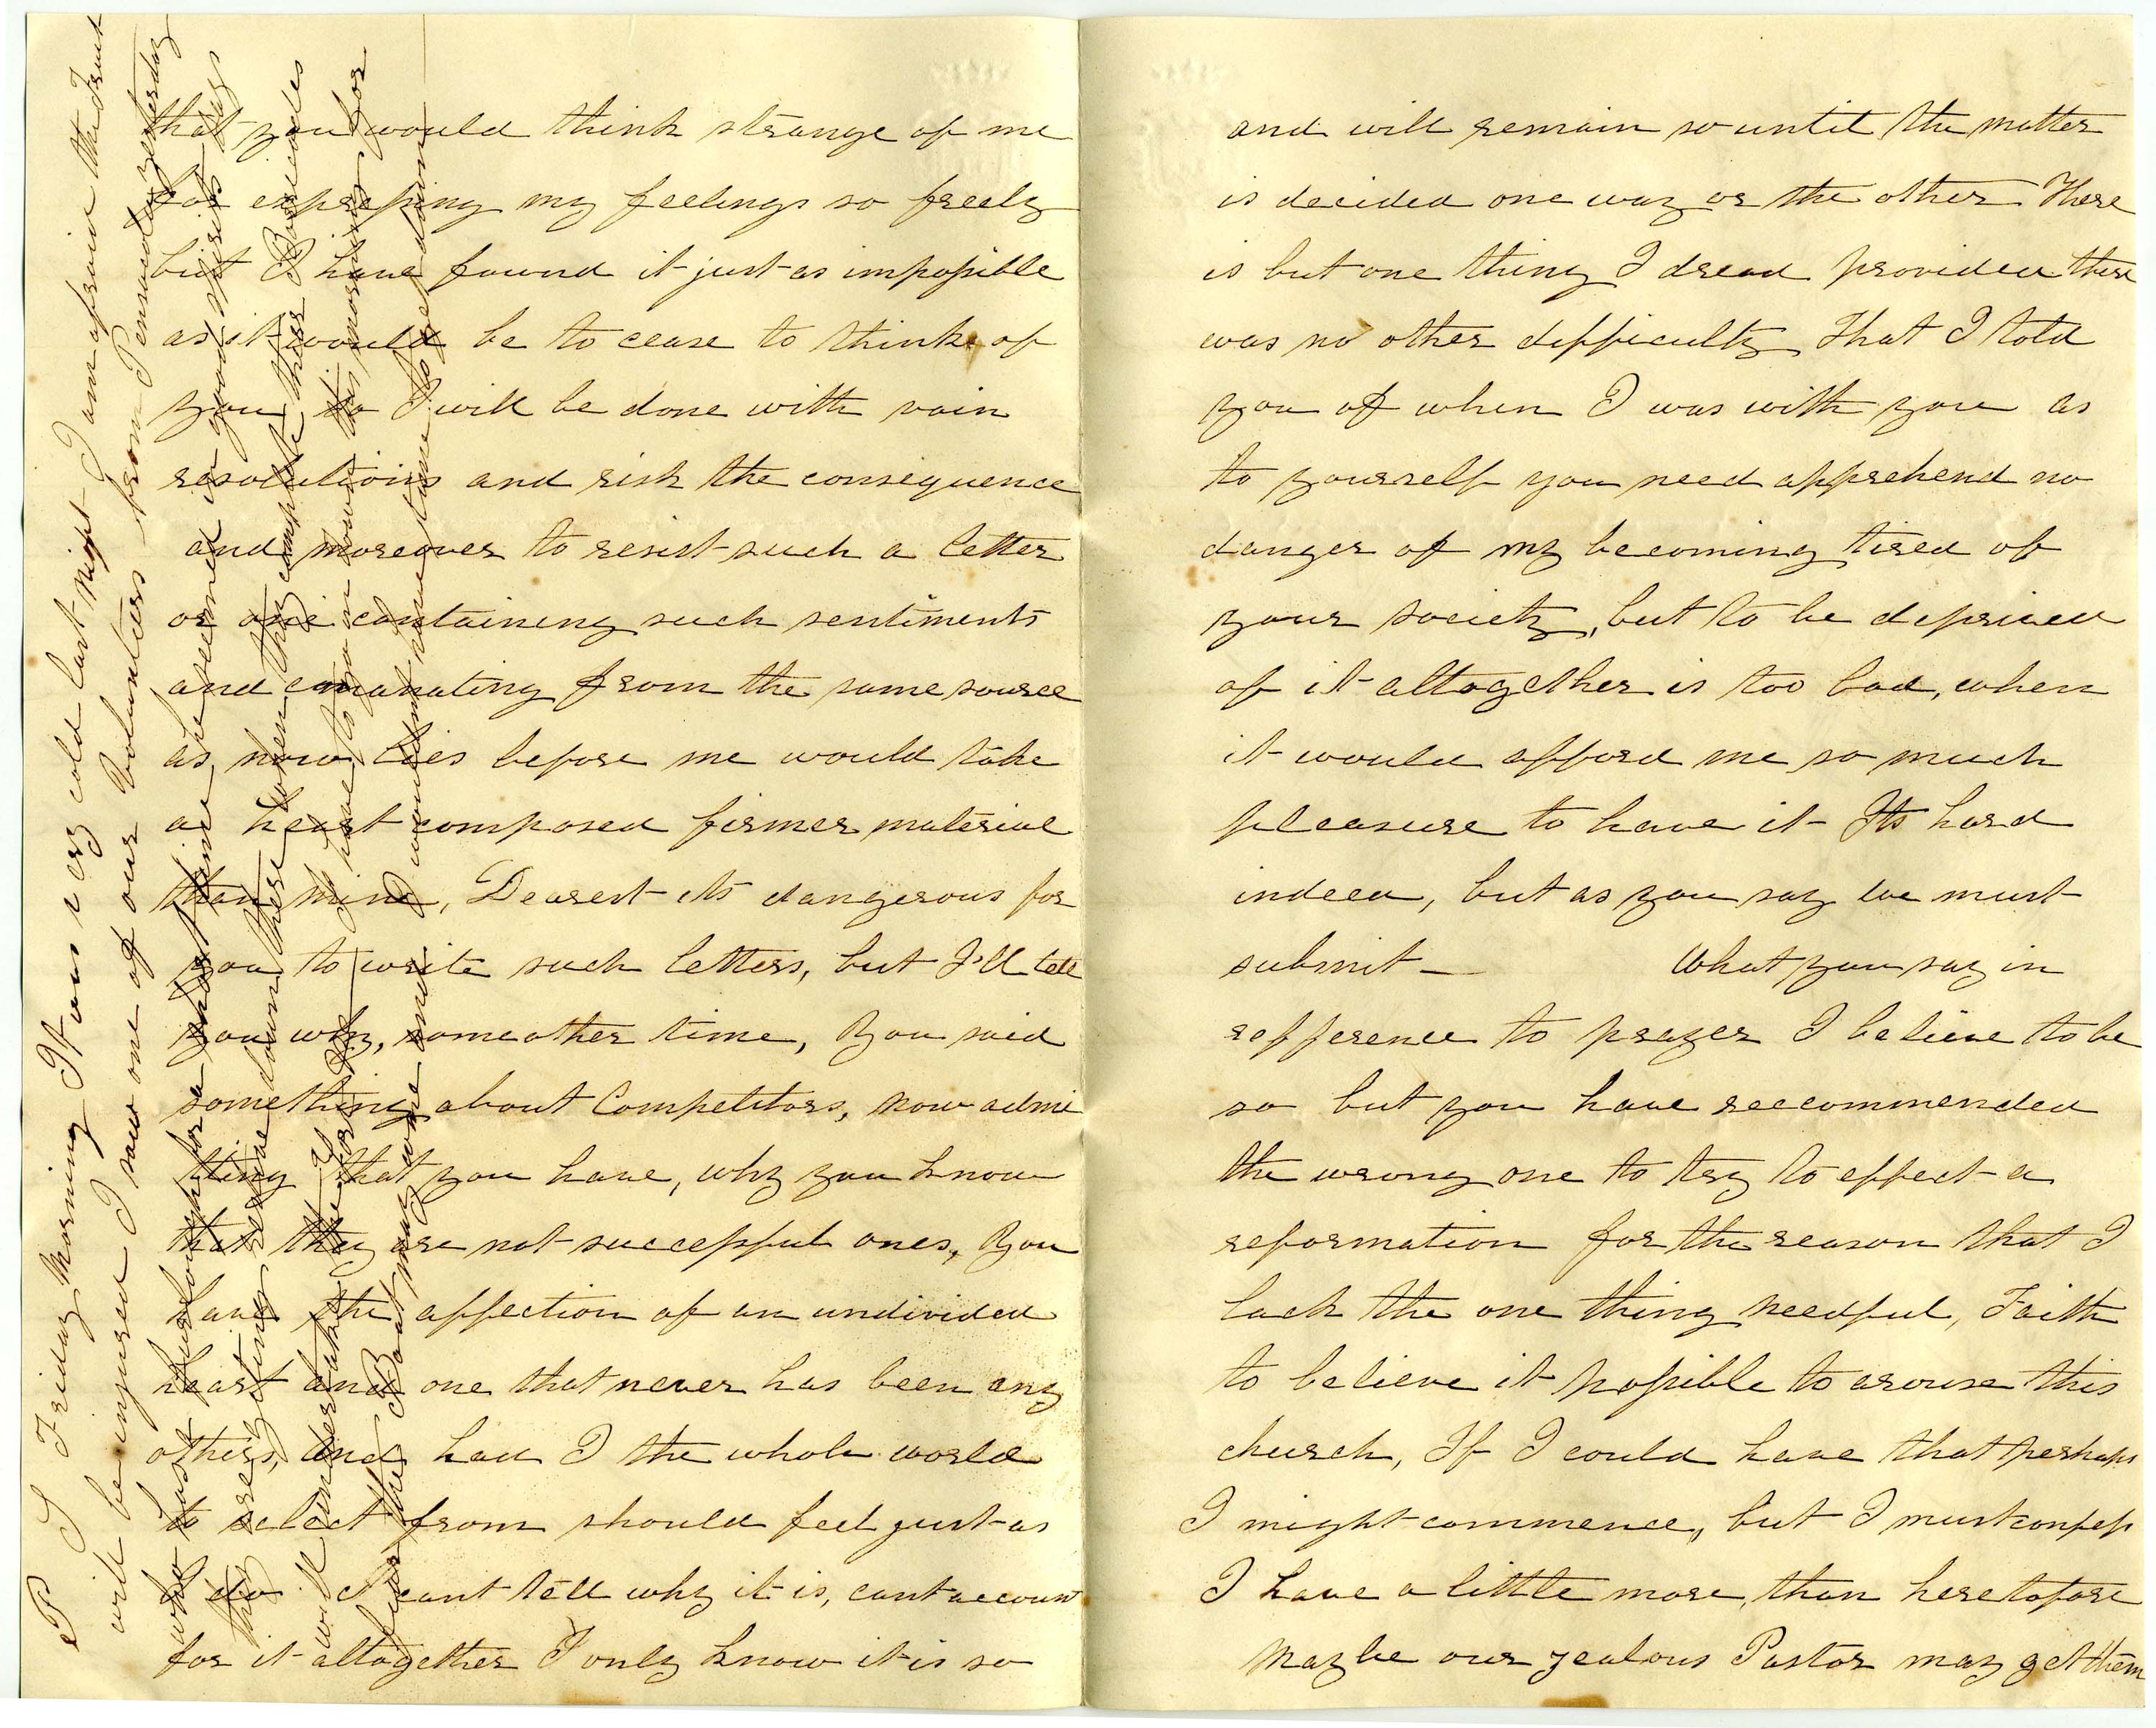 that you would think strange of me
for expressing my feelings so freely
but I have found it just as impossible
as it would be to cease to think of
you, so I will be done with vain
resolutions and risk the consequence
and moreover to resist such a letter
or one containing such sentiments
and emanating from the same source
as now lies before me would take
a heart composed firmer material
than mine, Dearest its dangerous for
you to write such letters, but I'll tell
you why, some other time, You said
something about Competitors, now admi
tting that you have, why you know
that they are not successful ones, You
have the affection of an undivided
heart and one that never has been any
others, and had I the whole world
to select from should feel just as
I do I cant tell why it is, cant account
for it altogether I only know it is so
and will remain so until the matter
is decided one way or the other There
is but one thing I dread provided there
was no other difficulty, That I told
you of when I was with you as
to yourself you need apprehend no
danger of my becoming tired of
your society, but to be deprived
of it altogether is too bad, when
it would afford me so much
pleasure to have it Its hard
indeed, but as you say we must
submit — What you say in
refference to prayer I believe to be
so but you have reccommended
the wrong one to try to effect a
reformation for the reason that I
lack the one thing needful, Faith
to believe it possible to arouse this
church, If I could have that perhaps
I might commence, but I must confess
I have a little more, than heretofore
Maybe our zealous Pastor may get them
P S Friday Morning It was very cold last night I am afraid the fruit
will be injured I saw one of our Volunteers from Pensacola yesterday
who was home for a short time he seemed in good spirits says